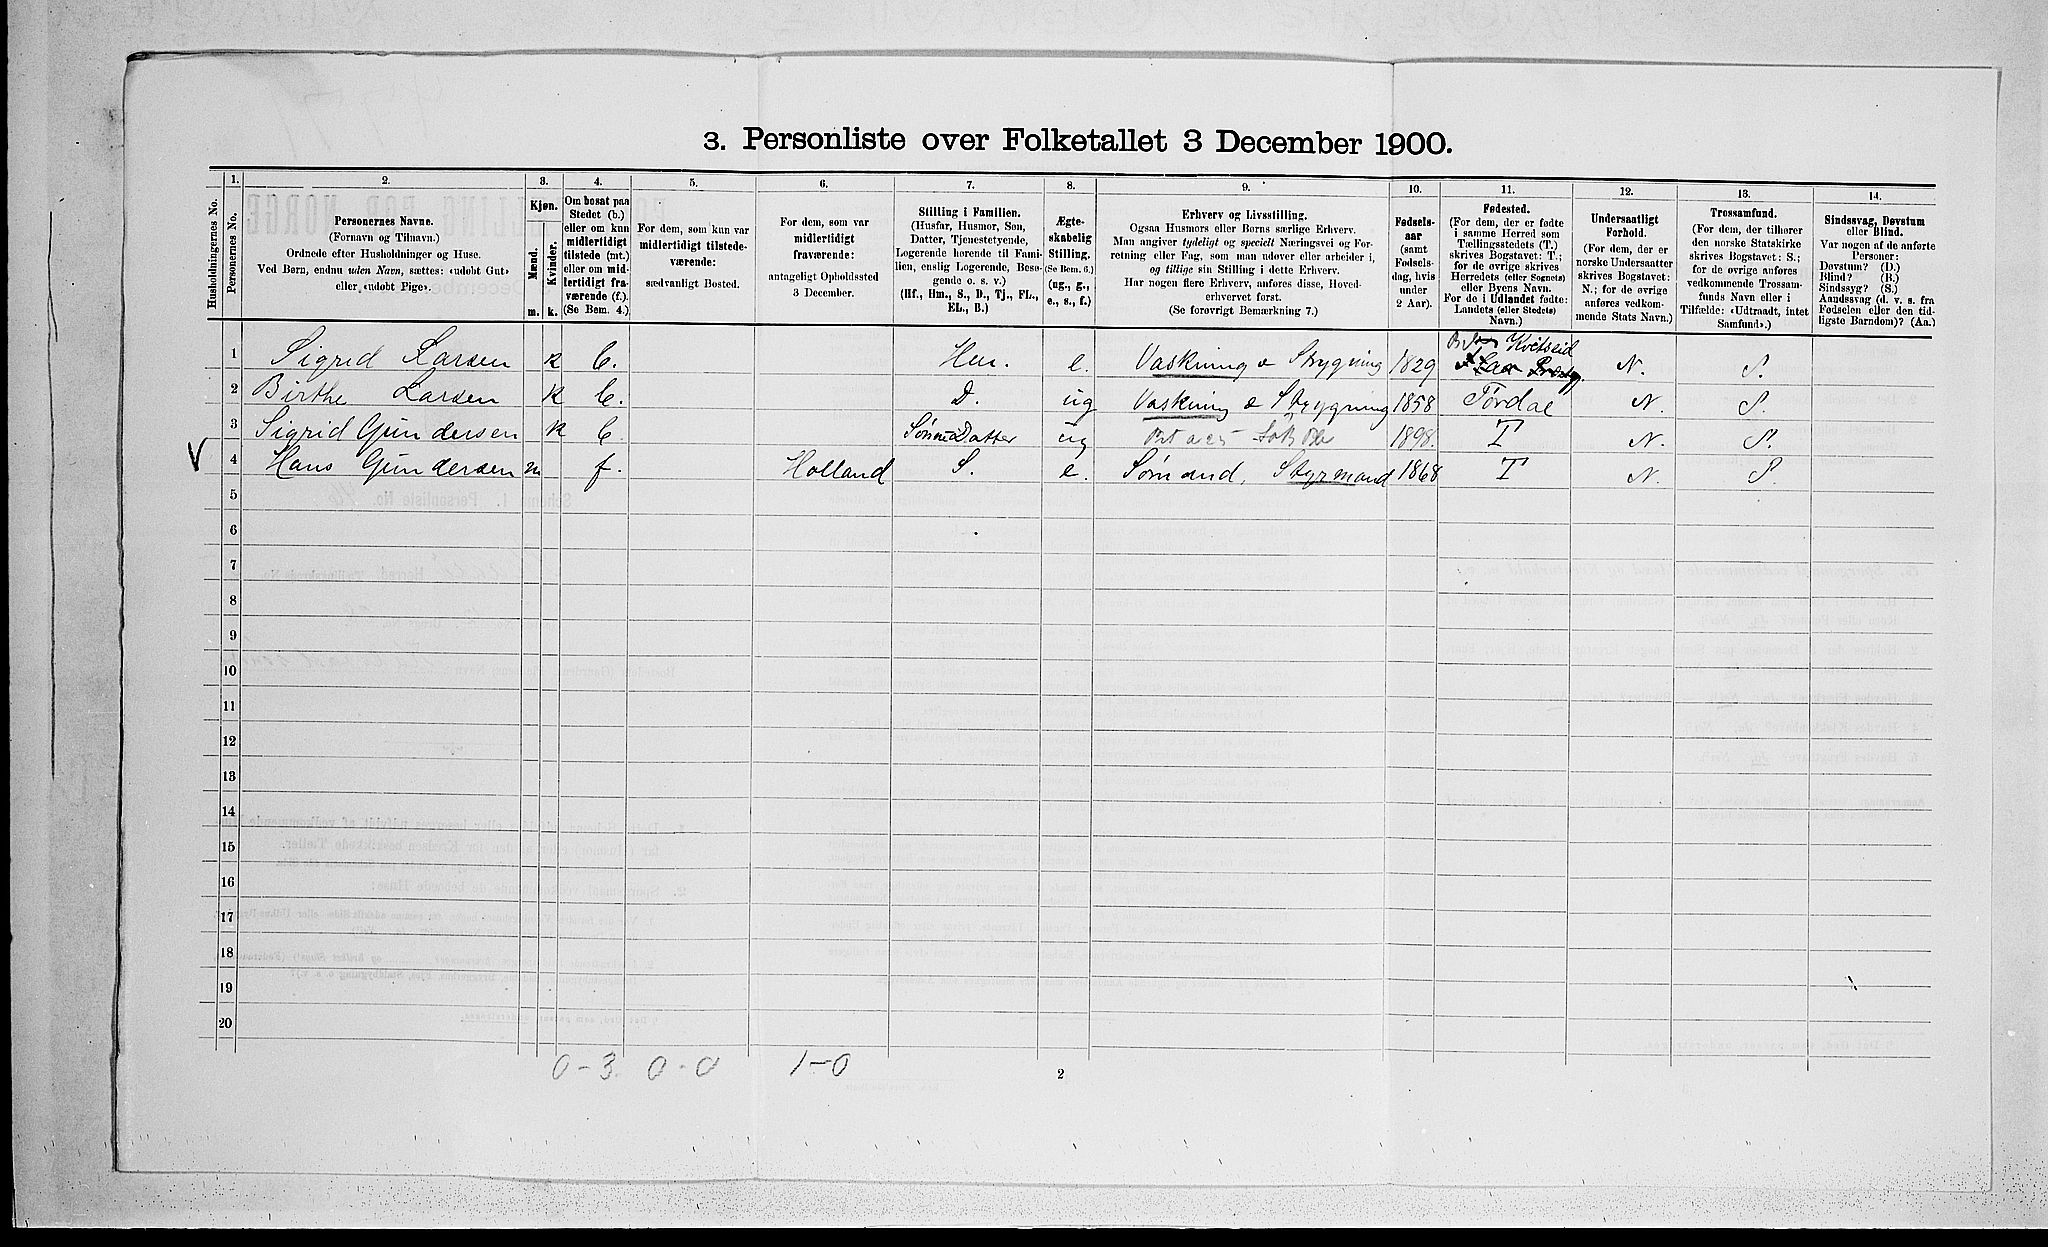 3. Personliste over Folketallet 3 December 1900.
1. 2. 3. 4. 5. 6. 7. 8. 9. 10. 11. 12. 13. 14.
Husholdningernes No.
Personernes No.
Personernes Navne.
(Fornavn og Tilnavn.)
Ordnede efter Husholdninger og Huse.
Ved Børn, endnu uden Navn, sættes: «udøbt Gut»
eller «udøbt Pige».
Kjøn.
Mænd. Kvinder.
m. k.
Om bosat paa
Stedet (b.)
eller om kun
midlertidigt
tilstede (mt.)
eller om mid-
lertidigt fra-
værende (f.).
(Se Bem. 4.)
For dem, som kun var
midlertidigt tilstede-
værende:
sædvanligt Bosted.
For dem, som var
midlertidigt
fraværende:
antageligt Opholdssted
3 December.
Stilling i Familien.
(Husfar, Husmor, Søn,
Datter, Tjenestetyende,
Logerende hørende til Fami-
lien, enslig Logerende, Besø-
gende o. s. v.)
(Hf., Hm., S., D., Tj., FL.,
EL., B.)
Ægte-
skabelig
Stilling.
(Se Bem. 6.)
(ug., g.,
e., s., f.)
Erhverv og Livsstilling.
Ogsaa Husmors eller Børns særlige Erhverv.
Man angiver tydeligt og specielt Næringsvei og For-
retning eller Fag, som man udøver eller arbeider i,
og tillige sin Stilling i dette Erhverv.
Har nogen flere Erhverv, anføres disse, Hoved-
erhvervet først.
(Se forøvrigt Bemærkning 7.)
Fødsels-
aar
(samt
Fødsels-
dag, hvis
under
2 Aar).
Fødested.
(For dem, der er fødte
i samme Herred som
Tællingsstedets (T.)
skrives Bogstavet: T.;
for de øvrige skrives
Herredets (eller Sognets)
eller Byens Navn.
For de i Udlandet fødte:
Landets (eller Stedets)
Navn.)
Undersaatligt
Forhold.
(For dem, der er
norske Undersaatter
skrives Bogstavet:
N.; for de øvrige
anføres vedkom-
mende Stats Navn.)
Trossamfund.
(For dem, der tilhører
den norske Statskirke
skrives Bogstavet: S.;
for de øvrige anføres
vedkommende Trossam-
funds Navn eller i
Tilfælde: «Udtraadt, intet
Samfund».)
Sindssvag, Døvstum
eller Blind.
Var nogen af de anførte
Personer:
Døvstum? (D.)
Blind? (B.)
Sindssyg? (S.)
Aandssvag (d. v. s. fra
Fødselen eller den tid-
ligste Barndom)? (Aa.)
1 Sigrid Larsen k b. Hm. e. Vaskning & Strygning 1829 Kvitseid N. S.
2 Birthe Larsen k b. D. ug Vaskning & Strygning 1858 Tørdal N. S.
3 Sigrid Gundersen k b. Sønnedatter ug 1898. T N. S.
V 4 Hans Gundersen m f. Holland S. e. Sømand, Styrmand 1868 T N. S.
5
6
7
8
9
10
11
12
13
14
15
16
17
18
19
20
0-3. 0-0 1-0
2